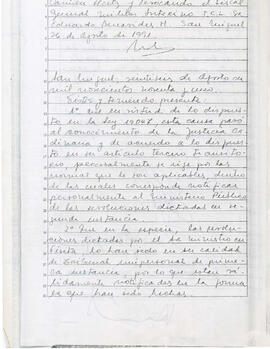 General Militar Interino T.C.L. Sr.
Eduardo Fernández H. San Miguel
26 de Agosto de 1991.
San Miguel, veintiseis de Agosto de
mil novecientos noventa y uno.
Vistos y teniendo presente:
1º Que en virtud de lo dispues-
to en la ley 19047, esta causa pasó
al conocimiento de la Justicia Or-
dinaria y de acuerdo a lo dispues-
to en su artículo tercero transi-
torio, procesalmente se rige por las
normas que le son aplicables, dentro
de las cuales corresponde notificar
personalmente al Ministerio Público
de las resoluciones dictadas en se-
gunda instancia.
2º Que en la especie, las resolu-
ciones dictadas por el Sr Ministro en
Visita, lo han sido en su calidad
de Tribunal unipersonal de prime-
ra instancia, por lo que están vá-
lidamente notificadas en la forma
en que han sido hechas.